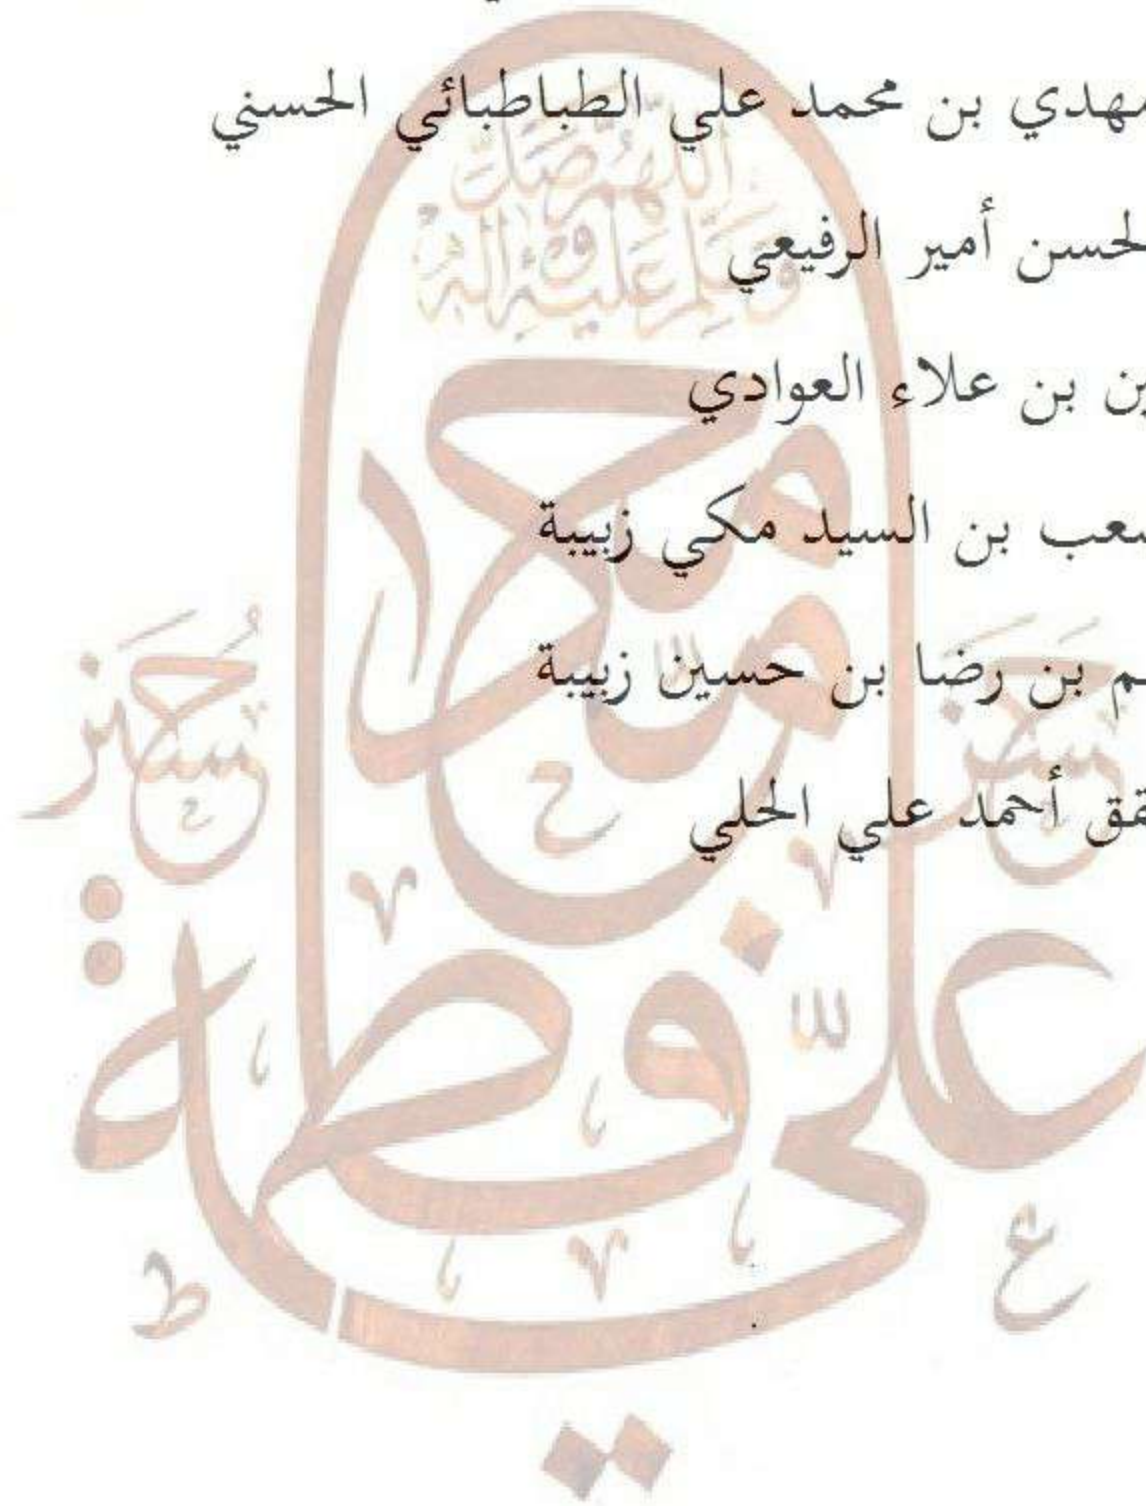 بن محمد علي الطباطبائي الحسني
أمير الرفيعي
بن علاء العوادي
بن السيد مكي زبيبة
بن رضا بن حسين زبيبة
أحمد علي الحلي
اللهم صل
وسلم عليه وآله
محمد
حسين
حسن
علي
فاطمة